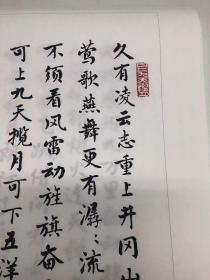 久有凌云志重上井冈山
莺歌燕舞更有潺々流
不须看风雷动旌旗奋
可上九天揽月可下五洋